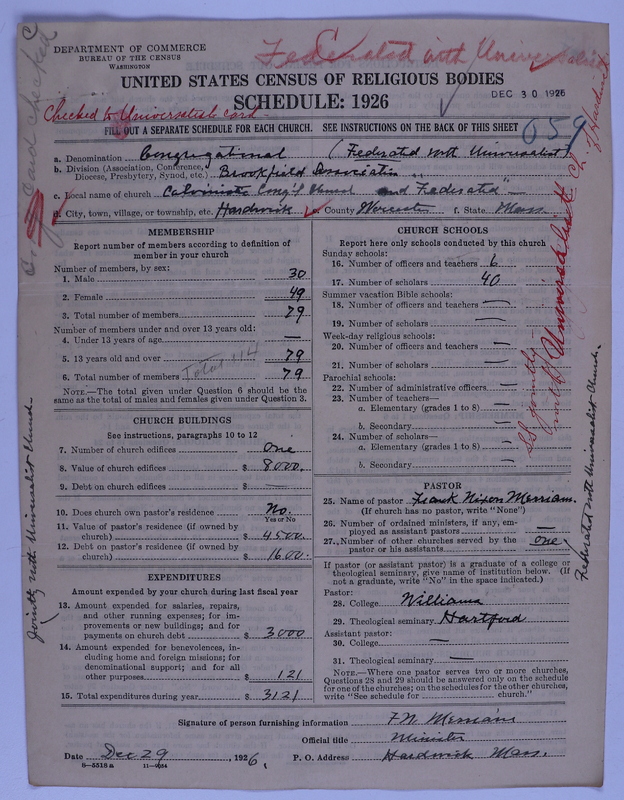 DEPARTMENT OF COMMERCE
BUREAU OF THE CENSUS
WASHINGTON
Federated with Universalist Ch. of Hardwick
UNITED STATES CENSUS OF RELIGIOUS BODIES
SCHEDULE: 1926
DEC 30 1926
Checked to Universalist card
card checked
659
FILL OUT A SEPARATE SCHEDULE FOR EACH CHURCH. SEE INSTRUCTIONS ON THE BACK OF THIS SHEET
a. Denomination Congregational (Federated with Universalist)
b. Division (Association, Conference, Diocese, Presbytery, Synod, etc.) Brookfield Association
c. Local name of church Calvinistic Cong'l Church and "Federated"
d. City, town, village, or township, etc. Hardwick e. County Worcester f. State Mass.
MEMBERSHIP
Report number of members according to definition of
member in your church
Number of members, by sex:
1. Male 30
2. Female 49
3. Total number of members 79
Number of members under and over 13 years old:
4. Under 13 years of age —
5. 13 years old and over 79
Total 114
6. Total number of members 79
NOTE.—The total given under Question 6 should be the
same as the total of males and females given under Question 3.
CHURCH BUILDINGS
See instructions, paragraphs 10 to 12
7. Number of church edifices One
8. Value of church edifices $ 8000.
9. Debt on church edifices $ —
10. Does church own pastor's residence? No.
Yes or No
11. Value of pastor's residence (if owned by
church) $ 4500.
12. Debt on pastor's residence (if owned by
church) $ 1600.
EXPENDITURES
Amount expended by your church during last fiscal year
13. Amount expended for salaries, repairs,
and other running expenses; for im-
provements or new buildings; and for
payments on church debt $ 3000
14. Amount expended for benevolences, in-
cluding home and foreign missions; for
denominational support; and for all
other purposes $ 121
15. Total expenditures during year $ 3121
Jointly with Universalist Church.
CHURCH SCHOOLS
Report here only schools conducted by this church
Sunday schools:
16. Number of officers and teachers 6
17. Number of scholars 40
Summer vacation Bible schools:
18. Number of officers and teachers —
19. Number of scholars —
Week-day religious schools:
20. Number of officers and teachers —
21. Number of scholars —
Parochial schools:
22. Number of administrative officers —
23. Number of teachers—
a. Elementary (grades 1 to 8) —
b. Secondary —
24. Number of scholars—
a. Elementary (grades 1 to 8) —
b. Secondary —
SS jointly
with Universalist Ch.
PASTOR
25. Name of pastor Frank Nixon Merriam.
(If church has no pastor, write "None")
26. Number of ordained ministers, if any, em-
ployed as assistant pastors —
27. Number of other churches served by the
pastor or his assistants one
Federated with Universalist Church.
If pastor (or assistant pastor) is a graduate of a college or
theological seminary, give name of institution below. (If
not a graduate, write "No" in the space indicated.)
Pastor:
28. College Williams
29. Theological seminary Hartford
Assistant pastor:
30. College —
31. Theological seminary —
NOTE.—Where one pastor serves two or more churches,
Questions 28 and 29 should be answered only on the schedule
for one of the churches; on the schedules for the other churches,
write "See schedule for church."
Signature of person furnishing information F. N. Merriam
Official title Minister
Date Dec 29, 1926. P. O. Address Hardwick Mass.
8-5518 a 11-9054